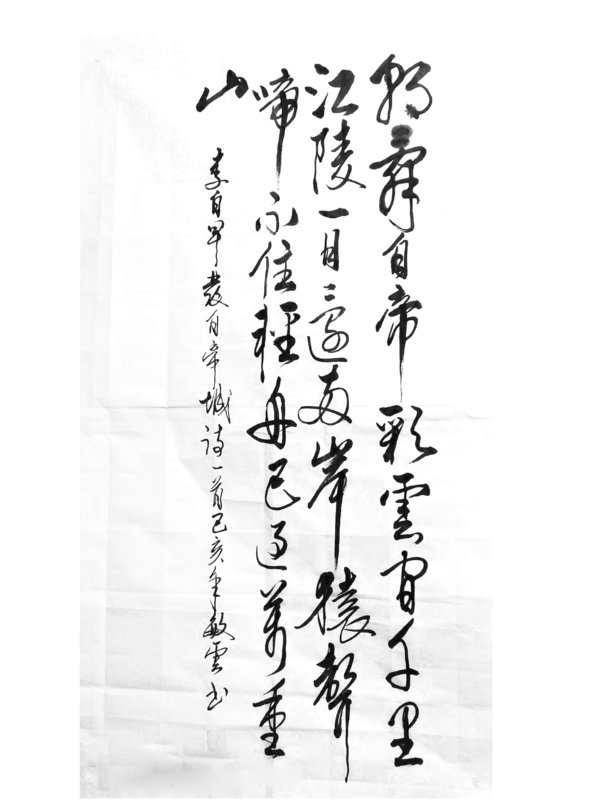 朝辞白帝彩雲間千里
江陵一日還兩岸猿聲
啼不住輕舟已過萬重
山
李白早發白帝城詩一首己亥年敏雲书